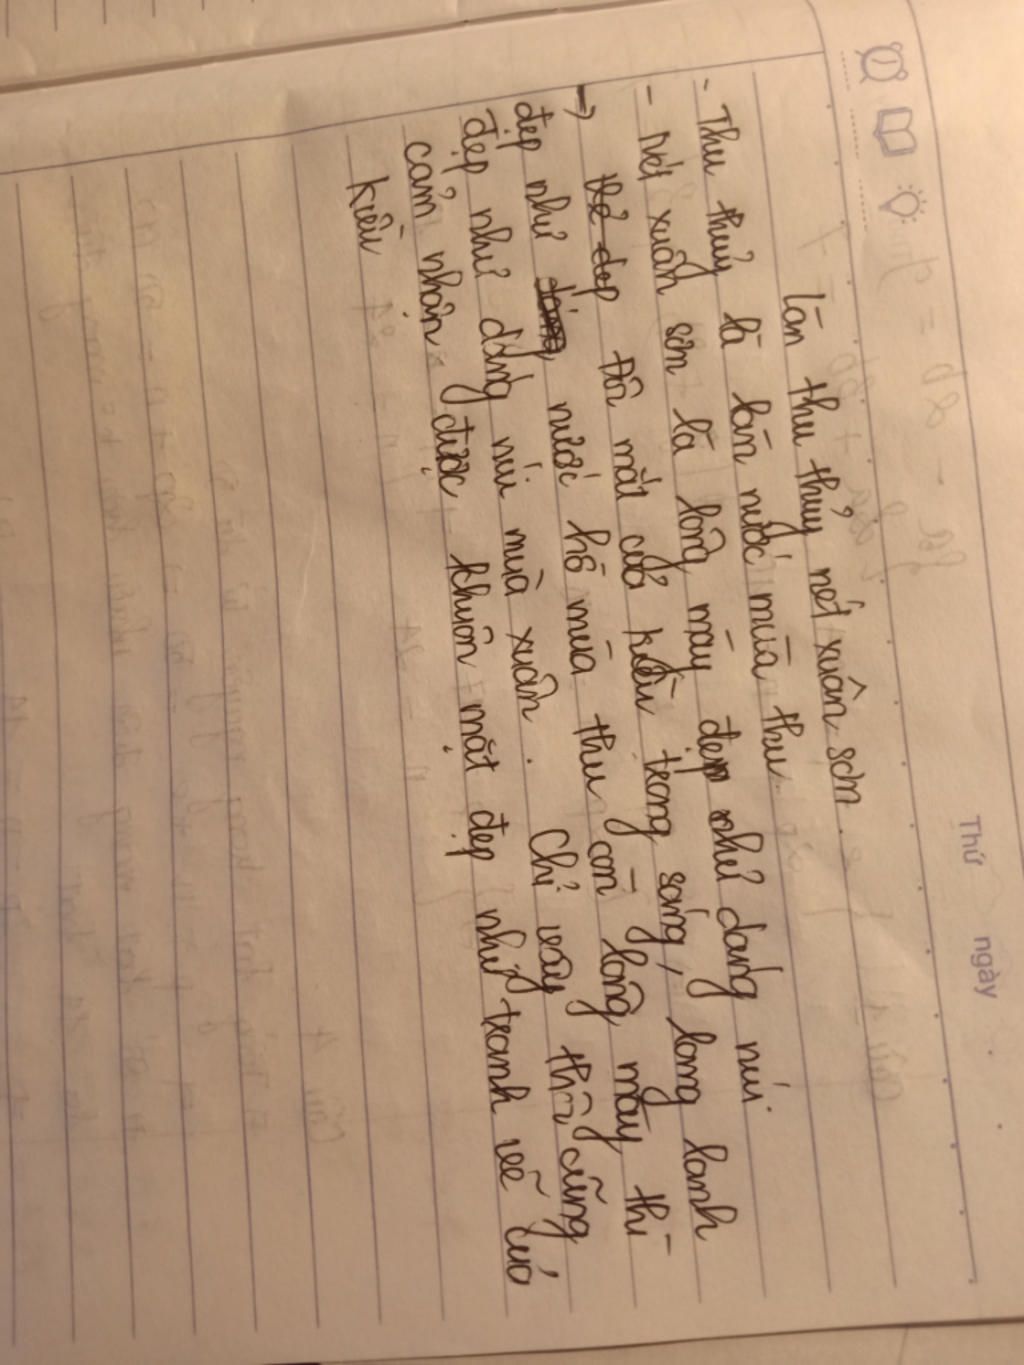 Thứ ngày
Làn thu thủy nét xuân sơn.
- Thu thủy là làn nước mùa thu
- Nét xuân sơn là lông mày đẹp như dáng núi.
→ Vẻ đẹp Đôi mắt của Kiều trong sáng, long lanh
đẹp như nước hồ mùa thu còn lông mày thì
đẹp như dáng núi mùa xuân. Chỉ vậy thôi cũng
cảm nhận được khuôn mặt đẹp như tranh vẽ của
Kiều